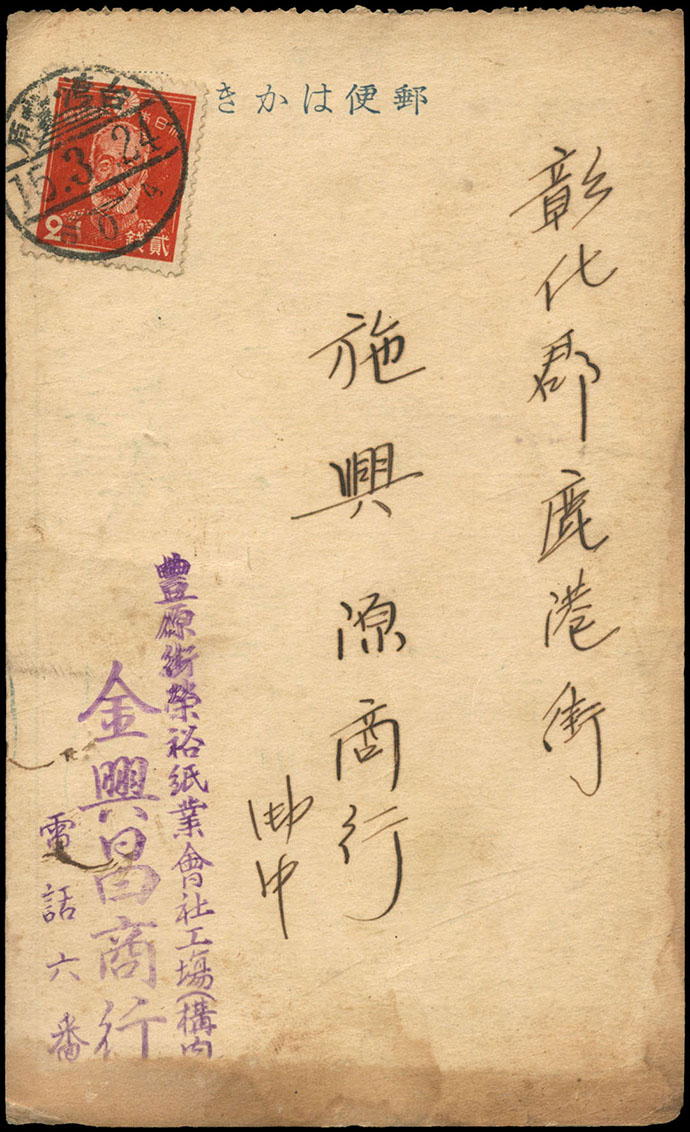 郵便はかき
彰化郡鹿港街
施興源商行
御中
豊原街榮裕紙業會社工場(構内
金興昌商行
電話六番
台灣・豊原
15.3.24
2
貳銭